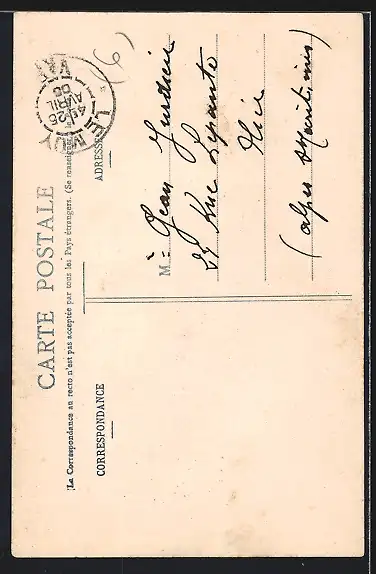 CARTE POSTALE
(La Correspondance au recto n'est pas acceptée par tous les Pays étrangers. (Se renseigner
CORRESPONDANCE
ADRESSE
LE MUY
4E 26
AVRIL
06
VAR
(6)
M. Jean
27 Rue Lépante
Nice
(Alpes Maritimes)